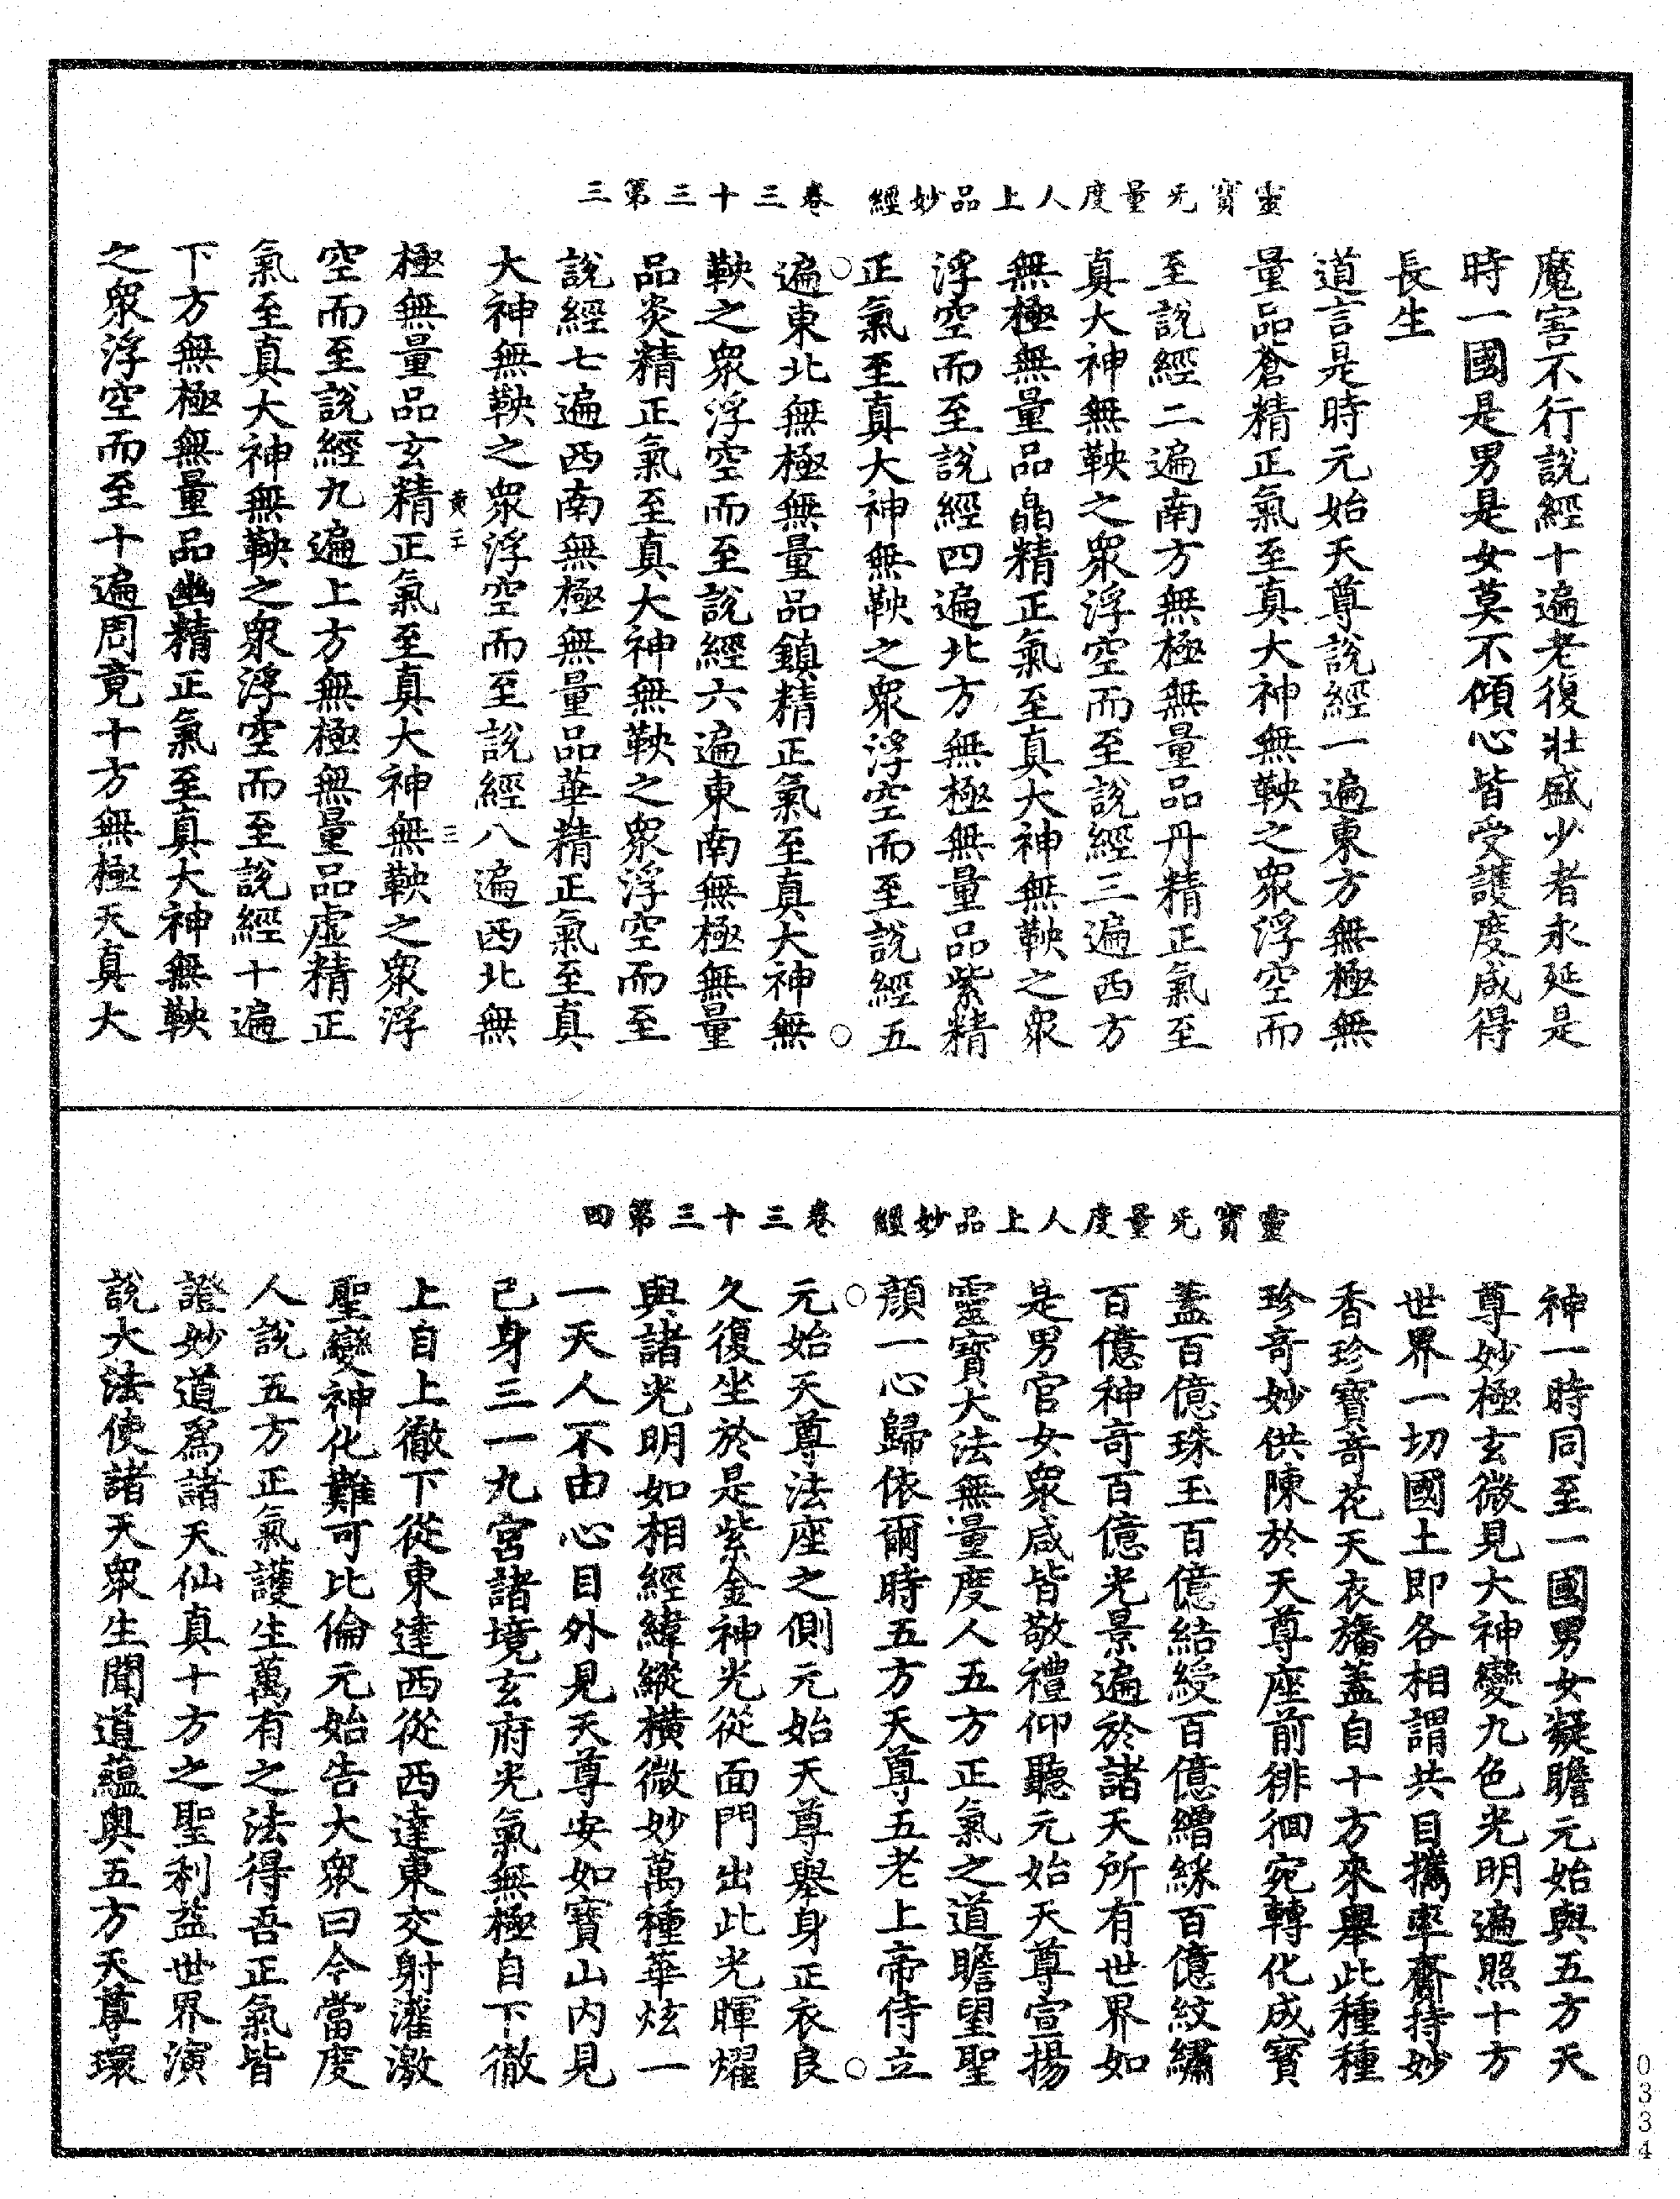 靈寶无量度人上品妙經 卷三十三第三
魔害不行說經十遍老復壯盛少者永延是
時一國是男是女莫不傾心皆受護度咸得
長生
道言是時元始天尊說經一遍東方無極無
量品蒼精正氣至真大神無鞅之眾浮空而
至說經二遍南方無極無量品丹精正氣至
真大神無鞅之眾浮空而至說經三遍西方
無極無量品皛精正氣至真大神無鞅之眾
浮空而至說經四遍北方無極無量品紫精
正氣至真大神無鞅之眾浮空而至說經五
遍東北無極無量品鎮精正氣至真大神無
鞅之眾浮空而至說經六遍東南無極無量
品炎精正氣至真大神無鞅之眾浮空而至
說經七遍西南無極無量品華精正氣至真
大神無鞅之眾浮空而至說經八遍西北無
黃二 三
極無量品玄精正氣至真大神無鞅之眾浮
空而至說經九遍上方無極無量品虛精正
氣至真大神無鞅之眾浮空而至說經十遍
下方無極無量品幽精正氣至真大神無鞅
之眾浮空而至十遍周竟十方無極天真大
靈寶无量度人上品妙經 卷三十三第四
神一時同至一國男女凝瞻元始與五方天
尊妙極玄微見大神變九色光明遍照十方
世界一切國土即各相謂共目攜率齎持妙
香珍寶奇花天衣旛蓋自十方來舉此種種
珍奇妙供陳於天尊座前徘徊宛轉化成寶
蓋百億珠玉百億結綬百億繒綵百億紋繡
百億神奇百億光景遍於諸天所有世界如
是男官女眾咸皆敬禮仰聽元始天尊宣揚
靈寶大法無量度人五方正氣之道瞻望聖
顏一心歸依爾時五方天尊五老上帝侍立
元始天尊法座之側元始天尊舉身正衣良
久復坐於是紫金神光從面門出此光暉燿
與諸光明如相經緯縱橫微妙萬種華炫一
一天人不由心目外見天尊安如寶山內見
己身三一九宮諸境玄府光氣無極自下徹
上自上徹下從東達西從西達東交射灌激
聖變神化難可比倫元始告大眾曰今當度
人說五方正氣護生萬有之法得吾正氣皆
證妙道為諸天仙真十方之聖利益世界演
說大法使諸天眾生聞道蘊奧五方天尊環
0334